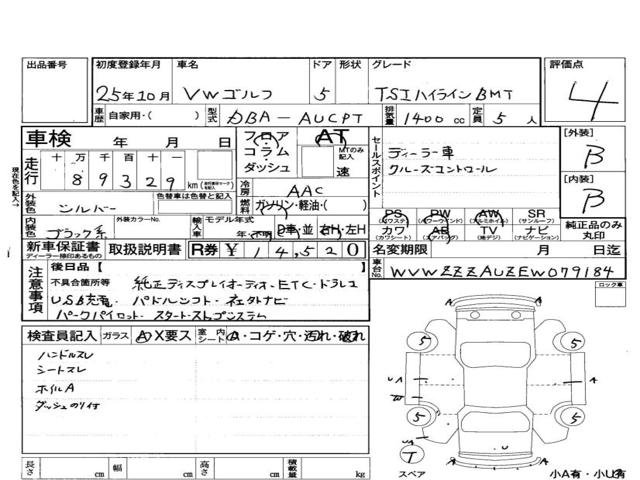 出品番号 初度登録年月 車名 ドア 形状 グレード 評価点
25年10月 VWゴルフ 5 TSIハイラインBMT 4
車歴 自家用・( ) 型式 DBA-AUCPT 排気量 1400 cc 定員 5 人
車検 年 月 日 フロア コラム ダッシュ AT MTのみ記入 速
走行 十 万 千 百 十 一
8 9 3 2 9 km
セールスポイント
ディーラー車
クルーズコントロール
[外装]
B
[内装]
B
現在色を記入→
冷房 AAC
外装色 シルバー 色替車は色替と記入
燃料 ガソリン・軽油・( )
PS PW AW SR
(パワステ) (パワーウインド) (アルミホイル) (サンルーフ)
内装色 ブラック系 外装カラーNo. 輸入車 モデル年式 年・不明 D車・並 右H・左H
カワ AB TV ナビ
(カワシート) (エアバッグ) (地デジ) (ナビゲーション)
純正品のみ丸印
新車保証書 取扱説明書 R券 ¥14,520
ディーラー捺印あるもの
名変期限 月 日迄
車台No. WVWZZZAUZEW079184
注意事項 後日品 [ ]
不具合箇所等 純正ディスプレイオーディオ・ETC・ドラレコ
USB充電・パドルシフト・社外ナビ
パークパイロット・スタートストップシステム
ロック車
検査員記入 ガラス A X要ス 室内シート A・コゲ・穴・汚れ・破れ
ハンドルスレ
シートスレ
ホイルA
ダッシュのり付
A
5 5
UA A
W
5 5
UA
U
T
A
スペア
小A有・小U有
長さ cm 幅 cm 高さ cm 積載量 kg